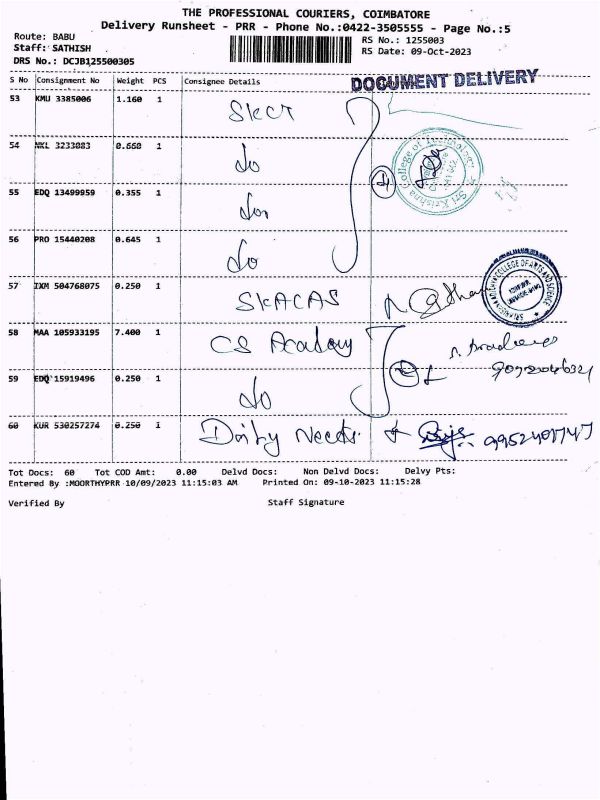 THE PROFESSIONAL COURIERS, COIMBATORE
Delivery Runsheet - PRR - Phone No.:0422-3505555 - Page No.:5
Route: BABU
RS No.: 1255003
Staff: SATHISH
RS Date: 09-Oct-2023
DRS No.: DCJB125500305
S No Consignment No Weight PCS Consignee Details
DOCUMENT DELIVERY
53 KMU 3385006 1.160 1 SKCT
54 NKL 3233083 0.660 1 do
Sri Krishna College of Technology
4
55 EDQ 13499959 0.355 1 do
56 PRO 15440208 0.645 1 do
57 IXM 504768075 0.250 1 SKACAS
COLLEGE OF ARTS AND SCIENCE
58 MAA 105933195 7.400 1 CS Academy
2
59 EDQ 15919496 0.250 1 do
60 KUR 530257274 0.250 1 Daily Needs
Tot Docs: 60 Tot COD Amt: 0.00 Delvd Docs: Non Delvd Docs: Delvy Pts:
Entered By :MOORTHYPRR 10/09/2023 11:15:03 AM Printed On: 09-10-2023 11:15:28
Verified By Staff Signature